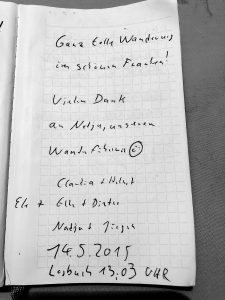 Ganz tolle Wanderung
im schönen Franken!
Vielen Dank
an Nadja, unseren
Wanderführer
Claudia + Helmut
Elke + Dieter
Nadja + Jürgen
14.5.2015
Logbuch 13.03 UHR